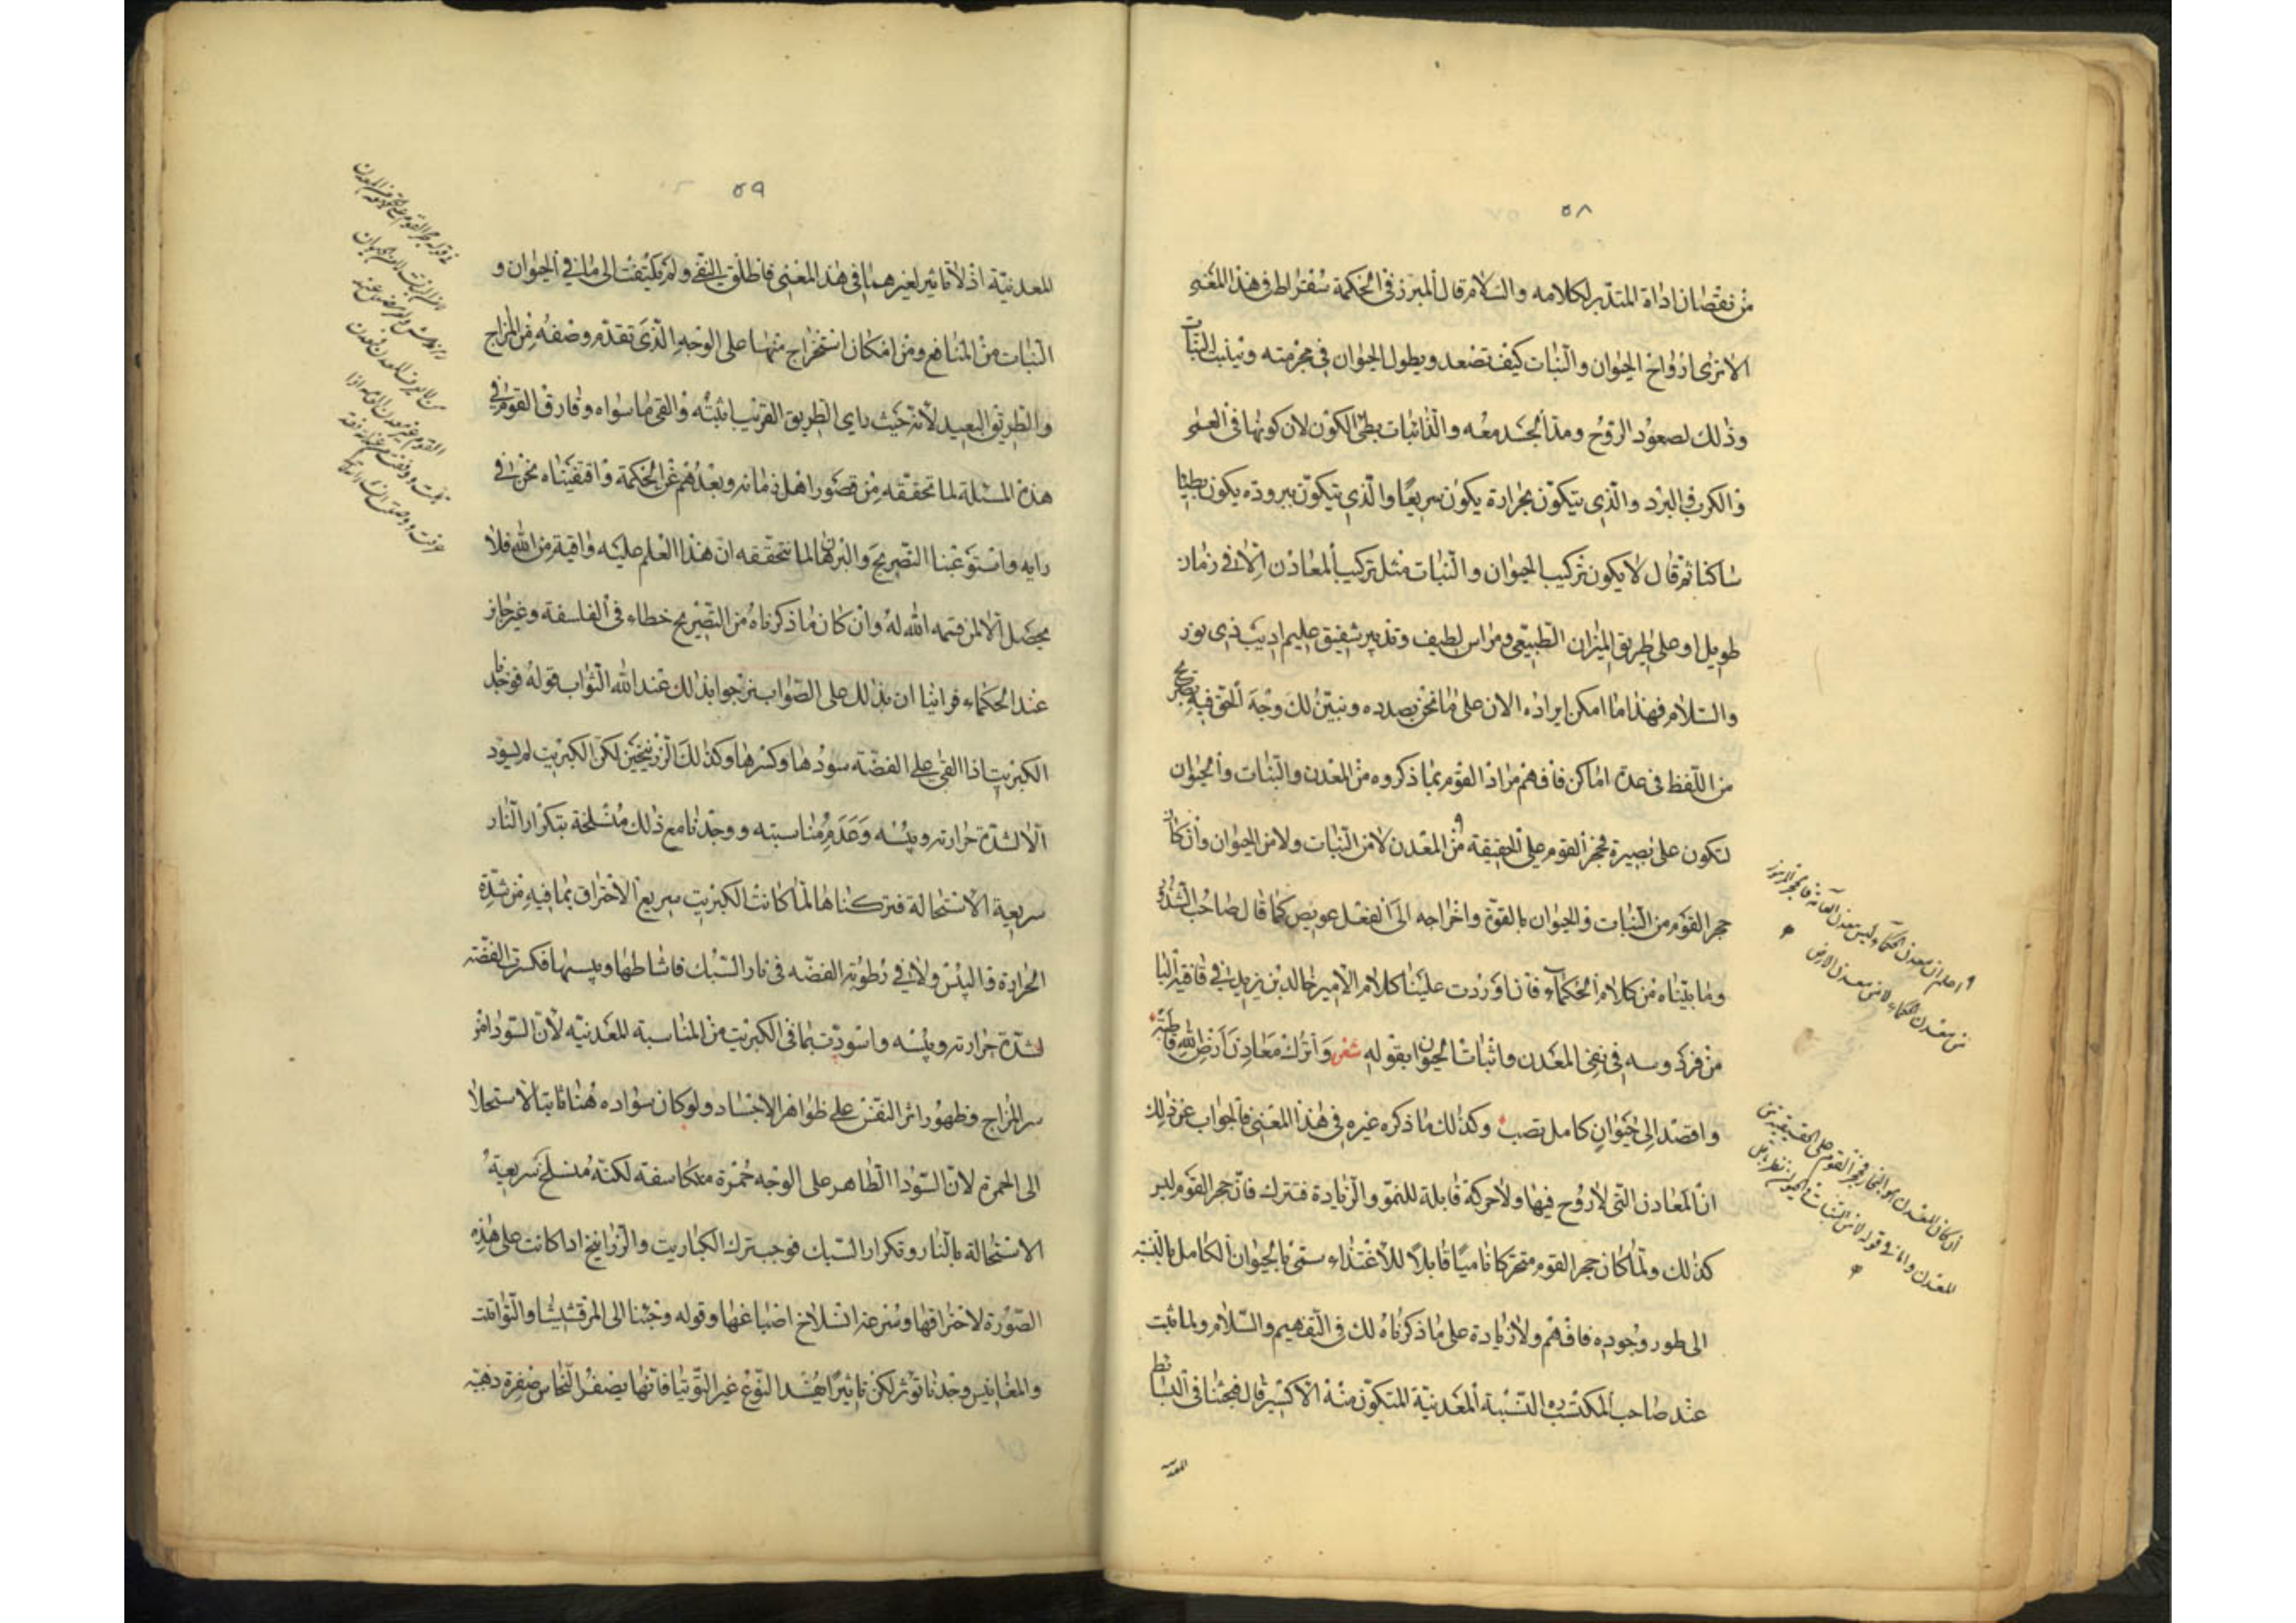 ٥٨
من نقصان اداة المتدبر لكلامه والسلام قال المبرز في الحكمة سقراط في هذا المعنى
الا ترى ارواح الحيوان والنبات كيف تصعد ويطول الحيوان في مجرمته وينبت النبات
وذلك لصعود الروح ومد الجسد معه والذائبات بطئ الكون لان كونها في العلم
والكرب في البرد والذي يتكون بحرارة يكون سريعا والذي يتكون ببرودة يكون بطيئا
ساكنا ثم قال لا يكون تركيب الحيوان والنبات مثل تركيب المعادن الا في زمان
طويل او على طريق الميزان الطبيعي ومراس لطيف وتدبير شفيق عليم اديب ذي نور
والسلام فهذا ما امكن ايراده الان على ما نحن بصدده ونبين لك وجه الحق فيه بصريح
من اللفظ في عدة اماكن فافهم مراد القوم بما ذكروه من المعدن والنبات والحيوان
لتكون على بصيرة فحجر القوم على الحقيقة من المعدن لا من النبات ولا من الحيوان وان كان
حجر القوم من النبات والحيوان بالقوة واخراجه الى الفعل عويص كما قال صاحب الشذور
وما بيناه من كلام الحكماء فان اوردت علينا كلام الامير خالد بن يزيد في قافية البا
من فردوسه في نفي المعدن واثبات الحيوان بقوله شعر واترك معادن ارض الله قاطبة
واقصد الى حيوان كامل تصب وكذلك ما ذكره غيره في هذا المعنى فالجواب عن ذلك
ان المعادن التي لا روح فيها ولا حركة قابلة للنمو والزيادة فتترك فان حجر القوم ليس
كذلك ولما كان حجر القوم متحركا ناميا قابلا للاغتذاء سمي بالحيوان الكامل بالنسبة
الى طور وجوده فافهم ولا زيادة على ما ذكرناه لك في التفهيم والسلام ولما ثبت
عند صاحب المكتسب ره النسبة المعدنية المتكون منه الاكسير قال فبحثنا في البسائط
المعدنية
٩ اعلم ان معدن الحكماء ليس معدن العامة فالحجر الرموز
من معدن الحكماء لا من معدن الارض
٥٩
المعدنية اذ لا تاثير لغيرهما في هذا المعنى فاطلق النفي ولم يلتفت الى ما في الحيوان و
النبات من المنافع ومن امكان استخراج مثهما على الوجه الذي تقدم وصفه من المزاج
والطريق البعيد لانه حيث راى الطريق القريب اثبته والقى ما سواه وفارق القوم في
هذه المسئلة لما تحققه من قصور اهل زمانه وبعدهم عن الحكمة واقتفيناه نحن في
رايه واستوعبنا التصريح والبرهان لما نتحققه ان هذا العلم عليه واقية من الله فلا
يحصل الا لمن قسمه الله له وان كان ما ذكرناه من التصريح خطاء في الفلسفة وغير جايز
عند الحكماء فراينا ان بذلك على الصواب نرجوا بذلك عند الله الثواب قوله فوجدنا
الكبريت اذا القي على الفضة سودها وكسرها وكذلك الزرنيخين لكن الكبريت لم يسود
الا لشدة حرارته ويبسه وعدم مناسبته ووجدنا مع ذلك منسلخة بتكرار النار
سريعة الاستحالة فتركناها لما كانت الكبريت سريع الاحتراق بما فيه من شدة
الحرارة واليبس ولاقى رطوبة الفضه في نار السبك فاشاطها ويبسها فكسرت الفضة
لشدة حرارته ويبسه واسودت بما في الكبريت من المناسبة للمعدنية لان السواد هو
سر المزاج وظهور اثر النفس على ظواهر الاجساد ولو كان سواده هنا ثابتا لاستحال
الى الحمرة لان السواد الظاهر على الوجه حمرة متكاسفة لكنه منسلخ سريعة
الاستحالة بالنار وتكرار السبك فوجب ترك الكباريت والزرانيخ اذا كانت على هذه
الصورة لاحتراقها وسرعة انسلاخ اصباغها وقوله وجئنا الى المرقشيثا والتواقت
والمغانيس وجدنا تؤثر لكن تاثيرا هذا النوع غير التوتيا فانها يصفر النحاس صفرة ذهبية